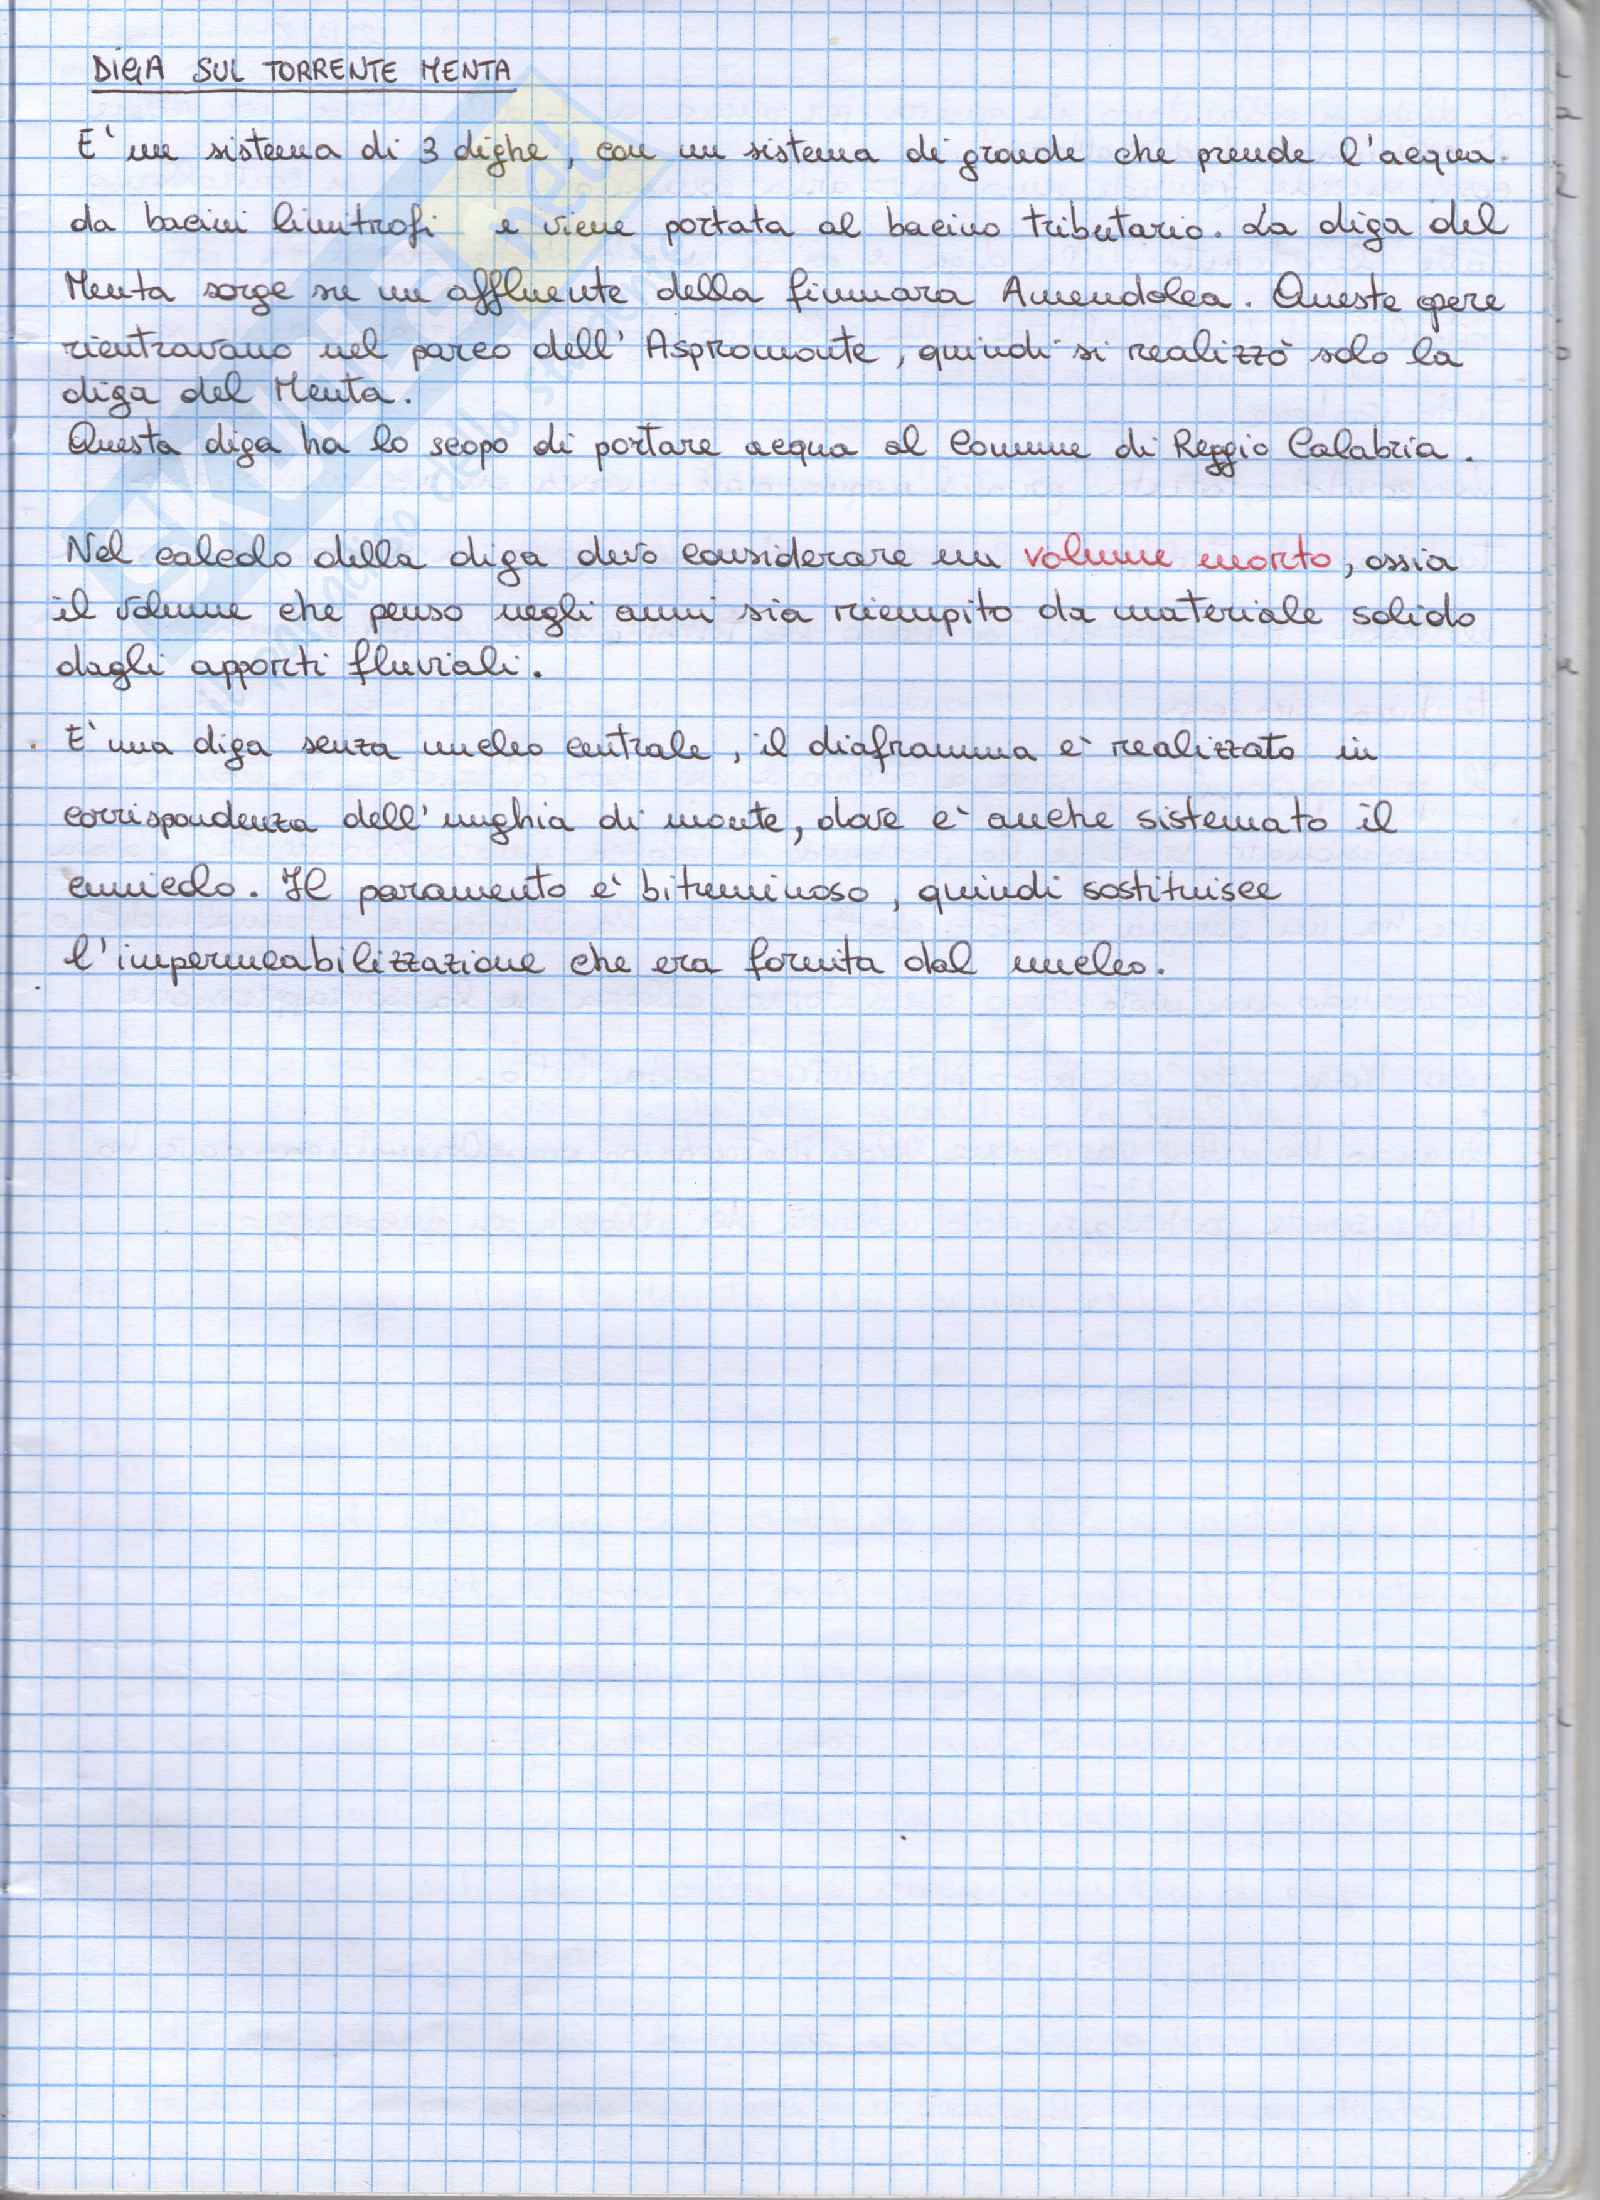 DIGA SUL TORRENTE MENTA
E' un sistema di 3 dighe, con un sistema di gronde che prende l'acqua
da bacini limitrofi e viene portata al bacino tributario. La diga del
Menta sorge su un affluente della fiumara Amendolea. Queste opere
rientravano nel parco dell'Aspromonte, quindi si realizzò solo la
diga del Menta.
Questa diga ha lo scopo di portare acqua al Comune di Reggio Calabria.
Nel calcolo della diga devo considerare un volume morto, ossia
il volume che penso negli anni sia riempito da materiale solido
dagli apporti fluviali.
E' una diga senza nucleo centrale, il diaframma è realizzato in
corrispondenza dell'unghia di monte, dove è anche sistemato il
cunicolo. Il paramento è bituminoso, quindi sostituisce
l'impermeabilizzazione che era fornita dal nucleo.
SKUOLA.net